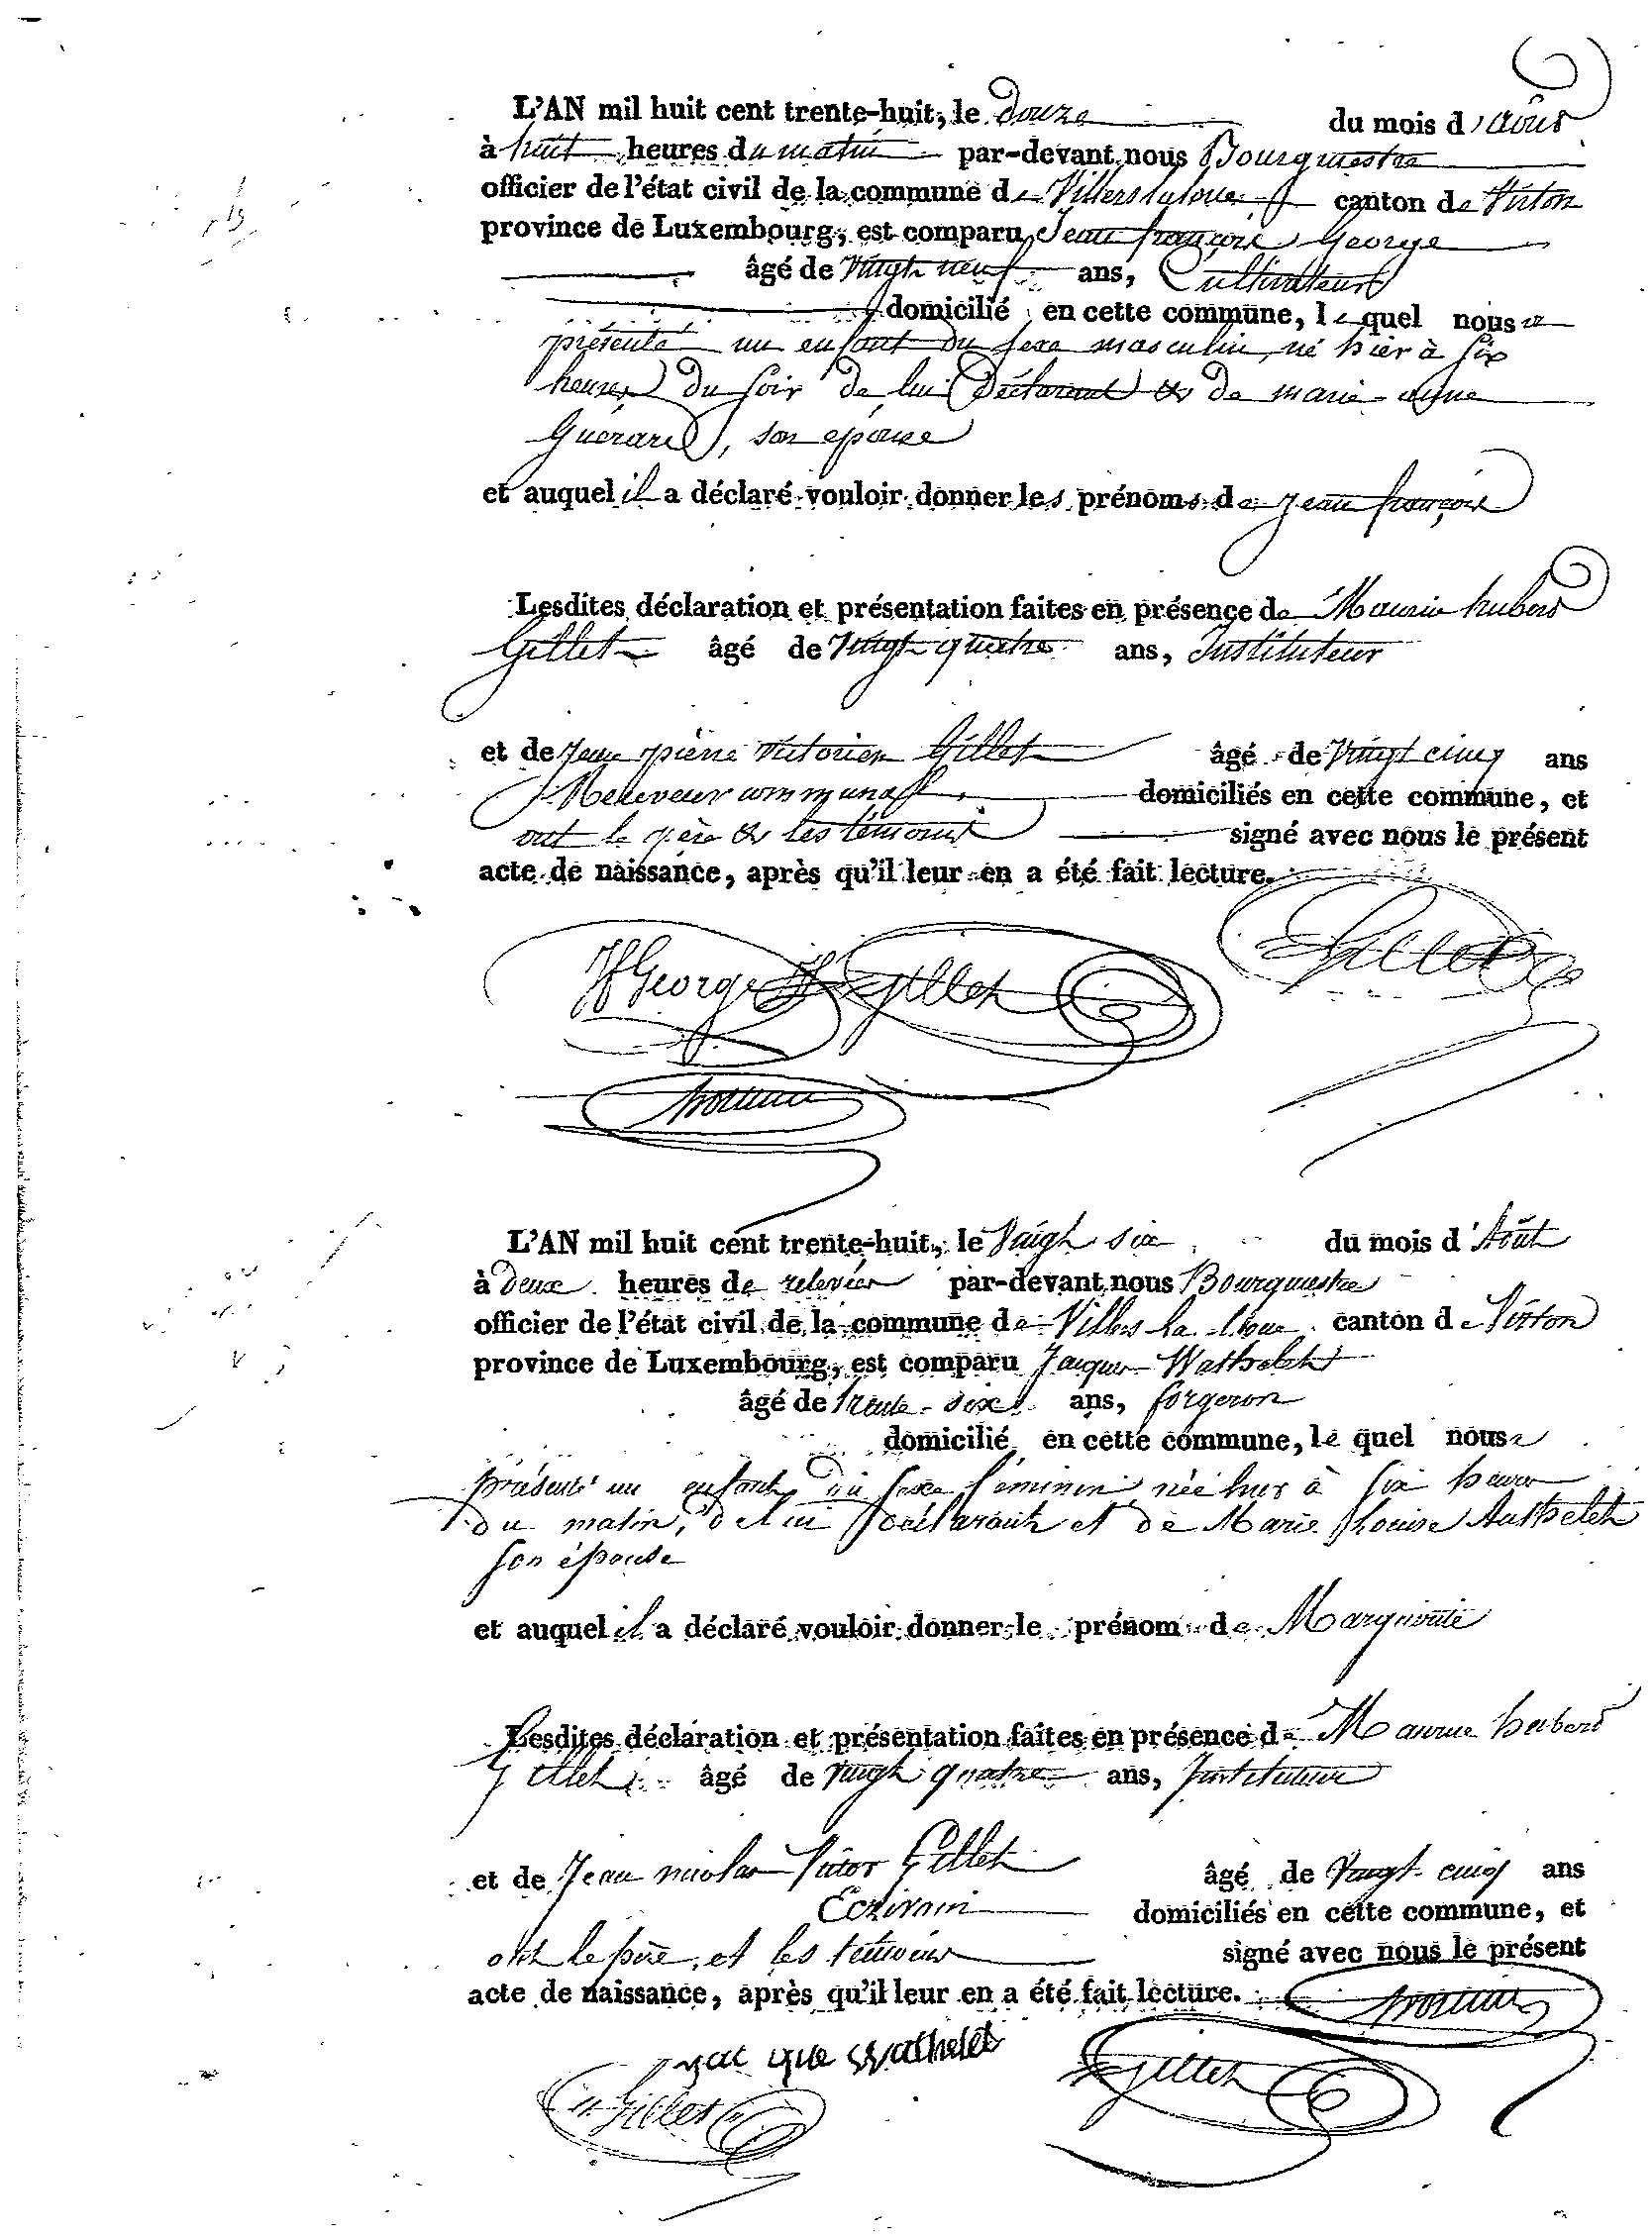 L'AN mil huit cent trente-huit, le douze du mois d'août
à huit heures du matin par-devant nous Bourguestre
officier de l'état civil de la commune de Villers la loue canton de Virton
province de Luxembourg, est comparu Jean françois George
âgé de Vingt neuf ans, Cultivateur
domicilié en cette commune, lequel nous a
présenté un enfant du sexe masculin, né hier à six
heures du soir de lui Déclarant et de marie-
Guérard, son épouse
et auquel il a déclaré vouloir donner les prénoms de jean françois
Lesdites déclaration et présentation faites en présence de hubert
Gillet âgé de Vingt-quatre ans, Instituteur
et de jean pierre Victorien Gillet âgé de Vingt cinq ans
Receveur communal domiciliés en cette commune, et
ont le père et les témoins signé avec nous le présent
acte de naissance, après qu'il leur en a été fait lecture.
George Gillet Gillet
L'AN mil huit cent trente-huit, le Vingt six du mois d'Août
à deux heures de relevée par-devant nous Bourguestre
officier de l'état civil de la commune de Villers la loue canton de Virton
province de Luxembourg, est comparu Jacques Wathelet
âgé de trente-six ans, forgeron
domicilié en cette commune, lequel nous a
présenté un enfant du sexe féminin née hier à six heures
du matin, de lui déclarant et de Marie Louise
son épouse
et auquel il a déclaré vouloir donner le prénom de Marguerite
Lesdites déclaration et présentation faites en présence de hubert
Gillet âgé de Vingt quatre ans, Instituteur
et de Jean nicolas Victor Gillet âgé de Vingt-cinq ans
Ecrivain domiciliés en cette commune, et
ont le père et les témoins signé avec nous le présent
acte de naissance, après qu'il leur en a été fait lecture.
jac que wathelet Gillet
Gillet